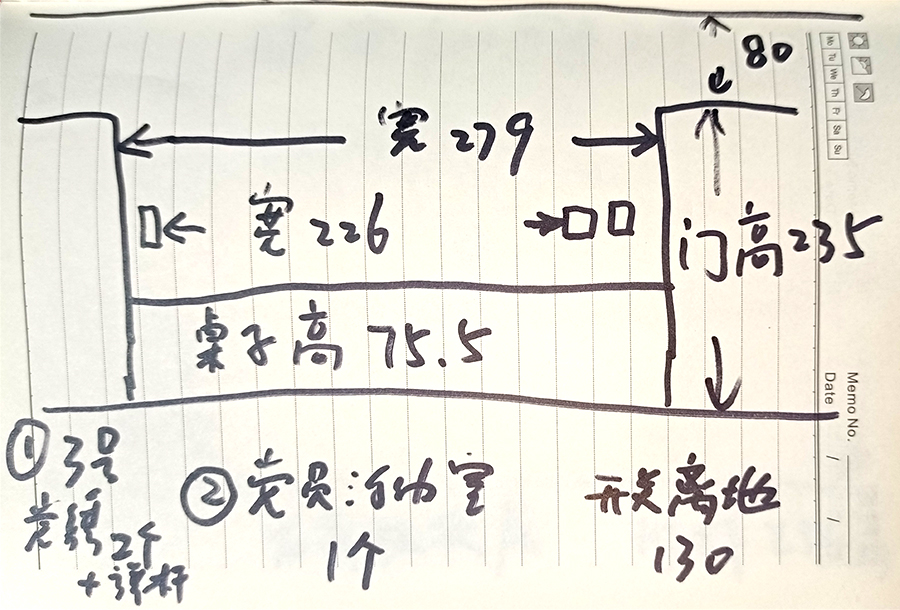 80
宽 279
宽 226
门高235
桌子高 75.5
① 3号
党旗
2个
+旗杆
② 党员活动室
1个
开关离地
130
Mo Tu We Th Fr Sa Su
Memo No.
Date / /